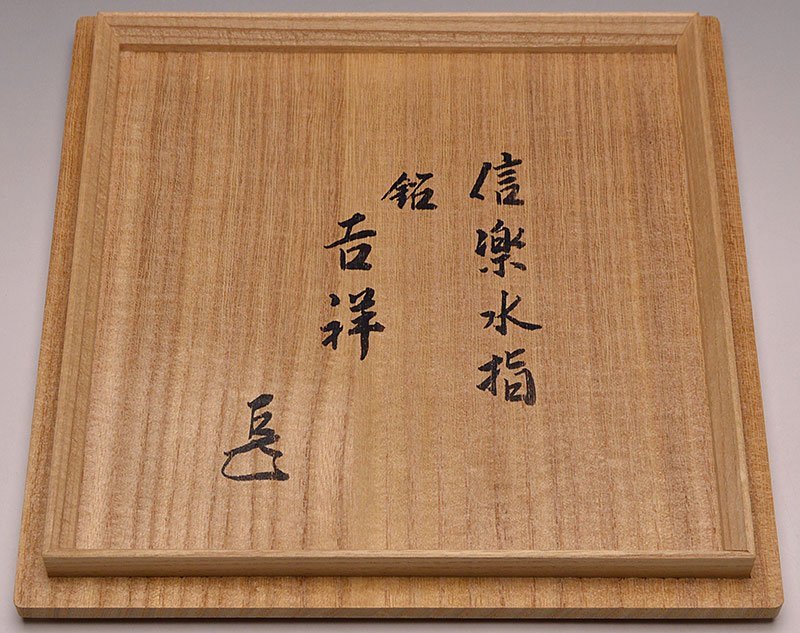 信楽水指
銘
吉祥